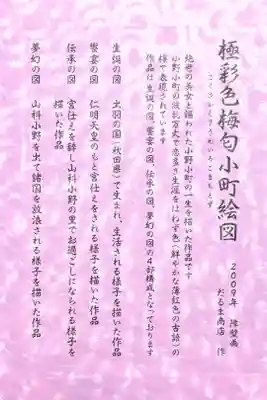 極彩色梅匂小町絵図
ごくさいしきうめいろこまちえず
2009年 襖壁画
だるま商店 作
絶世の美女と謳われた小野小町の一生を描いた作品です
小野小町の波乱万丈で恋多き生涯をはねず色(鮮やかな薄紅色の古語)の
様で表現されています
作品は生誕の図、饗宴の図、伝承の図、夢幻の図の4部構成となっております
生誕の図 出羽の国(秋田県)で生まれ、生活される様子を描いた作品
饗宴の図 仁明天皇のもと宮仕えをされる様子を描いた作品
伝承の図 宮仕えを辞し山科小野の里でお過ごしになられる様子を
描いた作品
夢幻の図 山科小野を出て諸国を放浪される様子を描いた作品